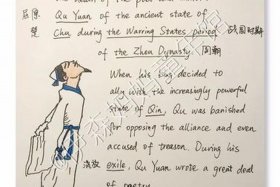 屈原 Qu Yuan of the ancient state of
楚 Chu during the Warring States period 战国时期
of the Zhou Dynasty 周朝
When his king decided to
ally with the increasingly powerful
state of Qin, Qu was banished
for opposing the alliance and even
accused of treason. During his
流放 exile, Qu Yuan wrote a great deal
of poetry